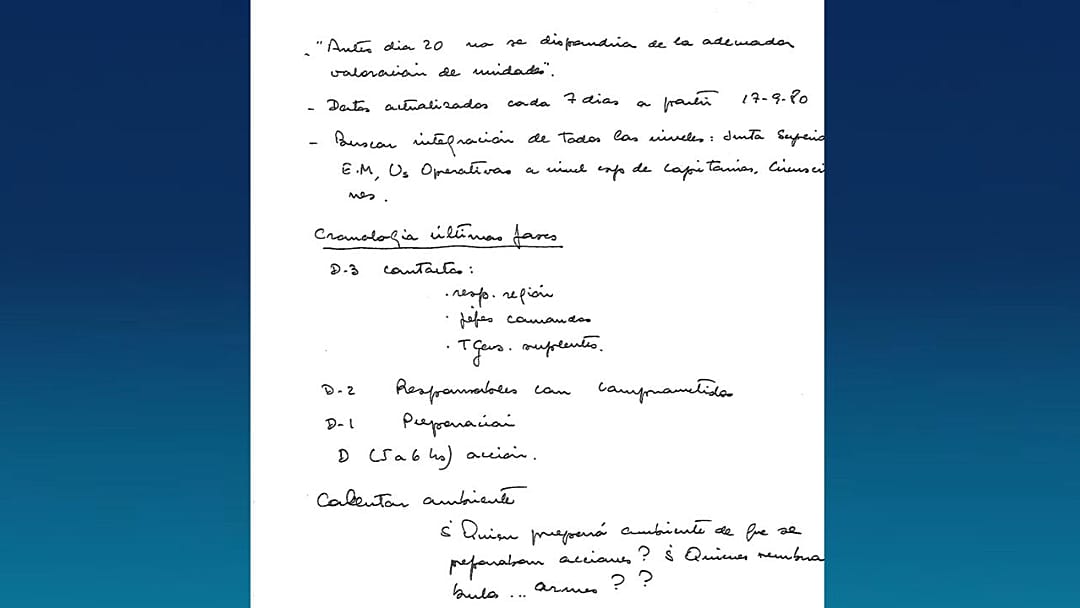 - "Antes dia 20 no se dispondria de la adecuada
valoración de unidades".
- Datos actualizados cada 7 dias a partir 17-9-80
- Buscar integración de todos los niveles: Junta Superio
E.M, Us Operativas a nivel esp de capitanias. Circunscri
nes.
Cronologia últimas fases
D-3 contactos:
. resp. región
. jefes comandos
. TGens. suplentes.
D-2 Responsables con comprometidos
D-1 Preparación
D (5 a 6 hs) acción.
Calentar ambiente
¿Quien preparó ambiente de que se
preparaban acciones? ¿Quienes
bulo... armas? ?